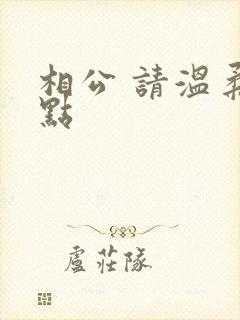 相公 請溫柔
點
盧莊隊